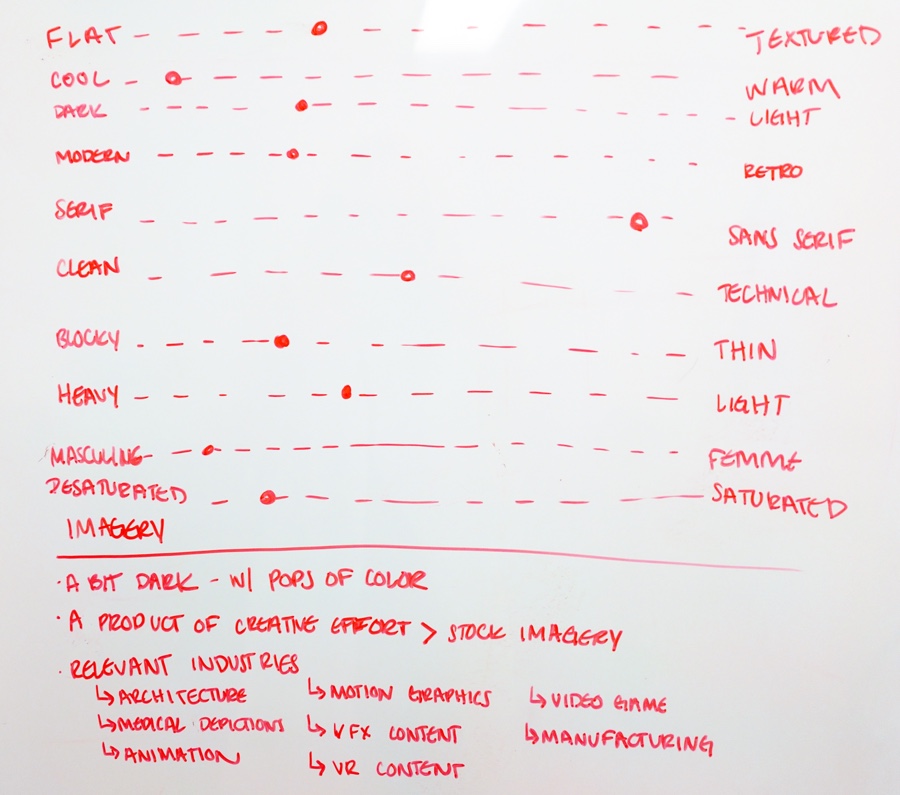 FLAT TEXTURED
COOL WARM
DARK LIGHT
MODERN RETRO
SERIF SANS SERIF
CLEAN TECHNICAL
BLOCKY THIN
HEAVY LIGHT
MASCULINE FEMME
DESATURATED SATURATED
IMAGERY
· A BIT DARK - W/ POPS OF COLOR
· A PRODUCT OF CREATIVE EFFORT > STOCK IMAGERY
· RELEVANT INDUSTRIES
↳ ARCHITECTURE ↳ MOTION GRAPHICS ↳ VIDEO GAME
↳ MEDICAL DEPICTIONS ↳ VFX CONTENT ↳ MANUFACTURING
↳ ANIMATION ↳ VR CONTENT